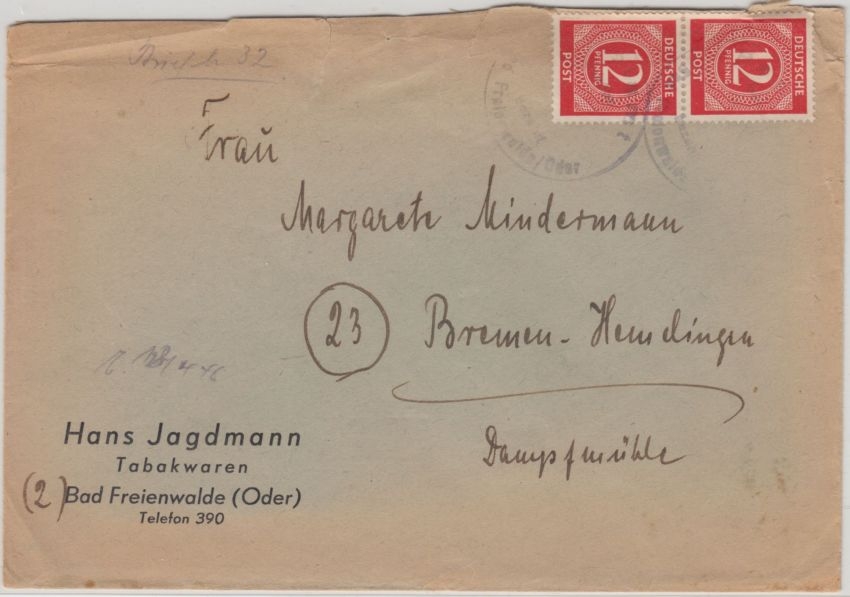 DEUTSCHE
12
PFENNIG
POST
DEUTSCHE
12
PFENNIG
POST
Frau
Margarete Mindermann
23 Bremen-Hemelingen
Dampfmühle
Hans Jagdmann
Tabakwaren
(2) Bad Freienwalde (Oder)
Telefon 390